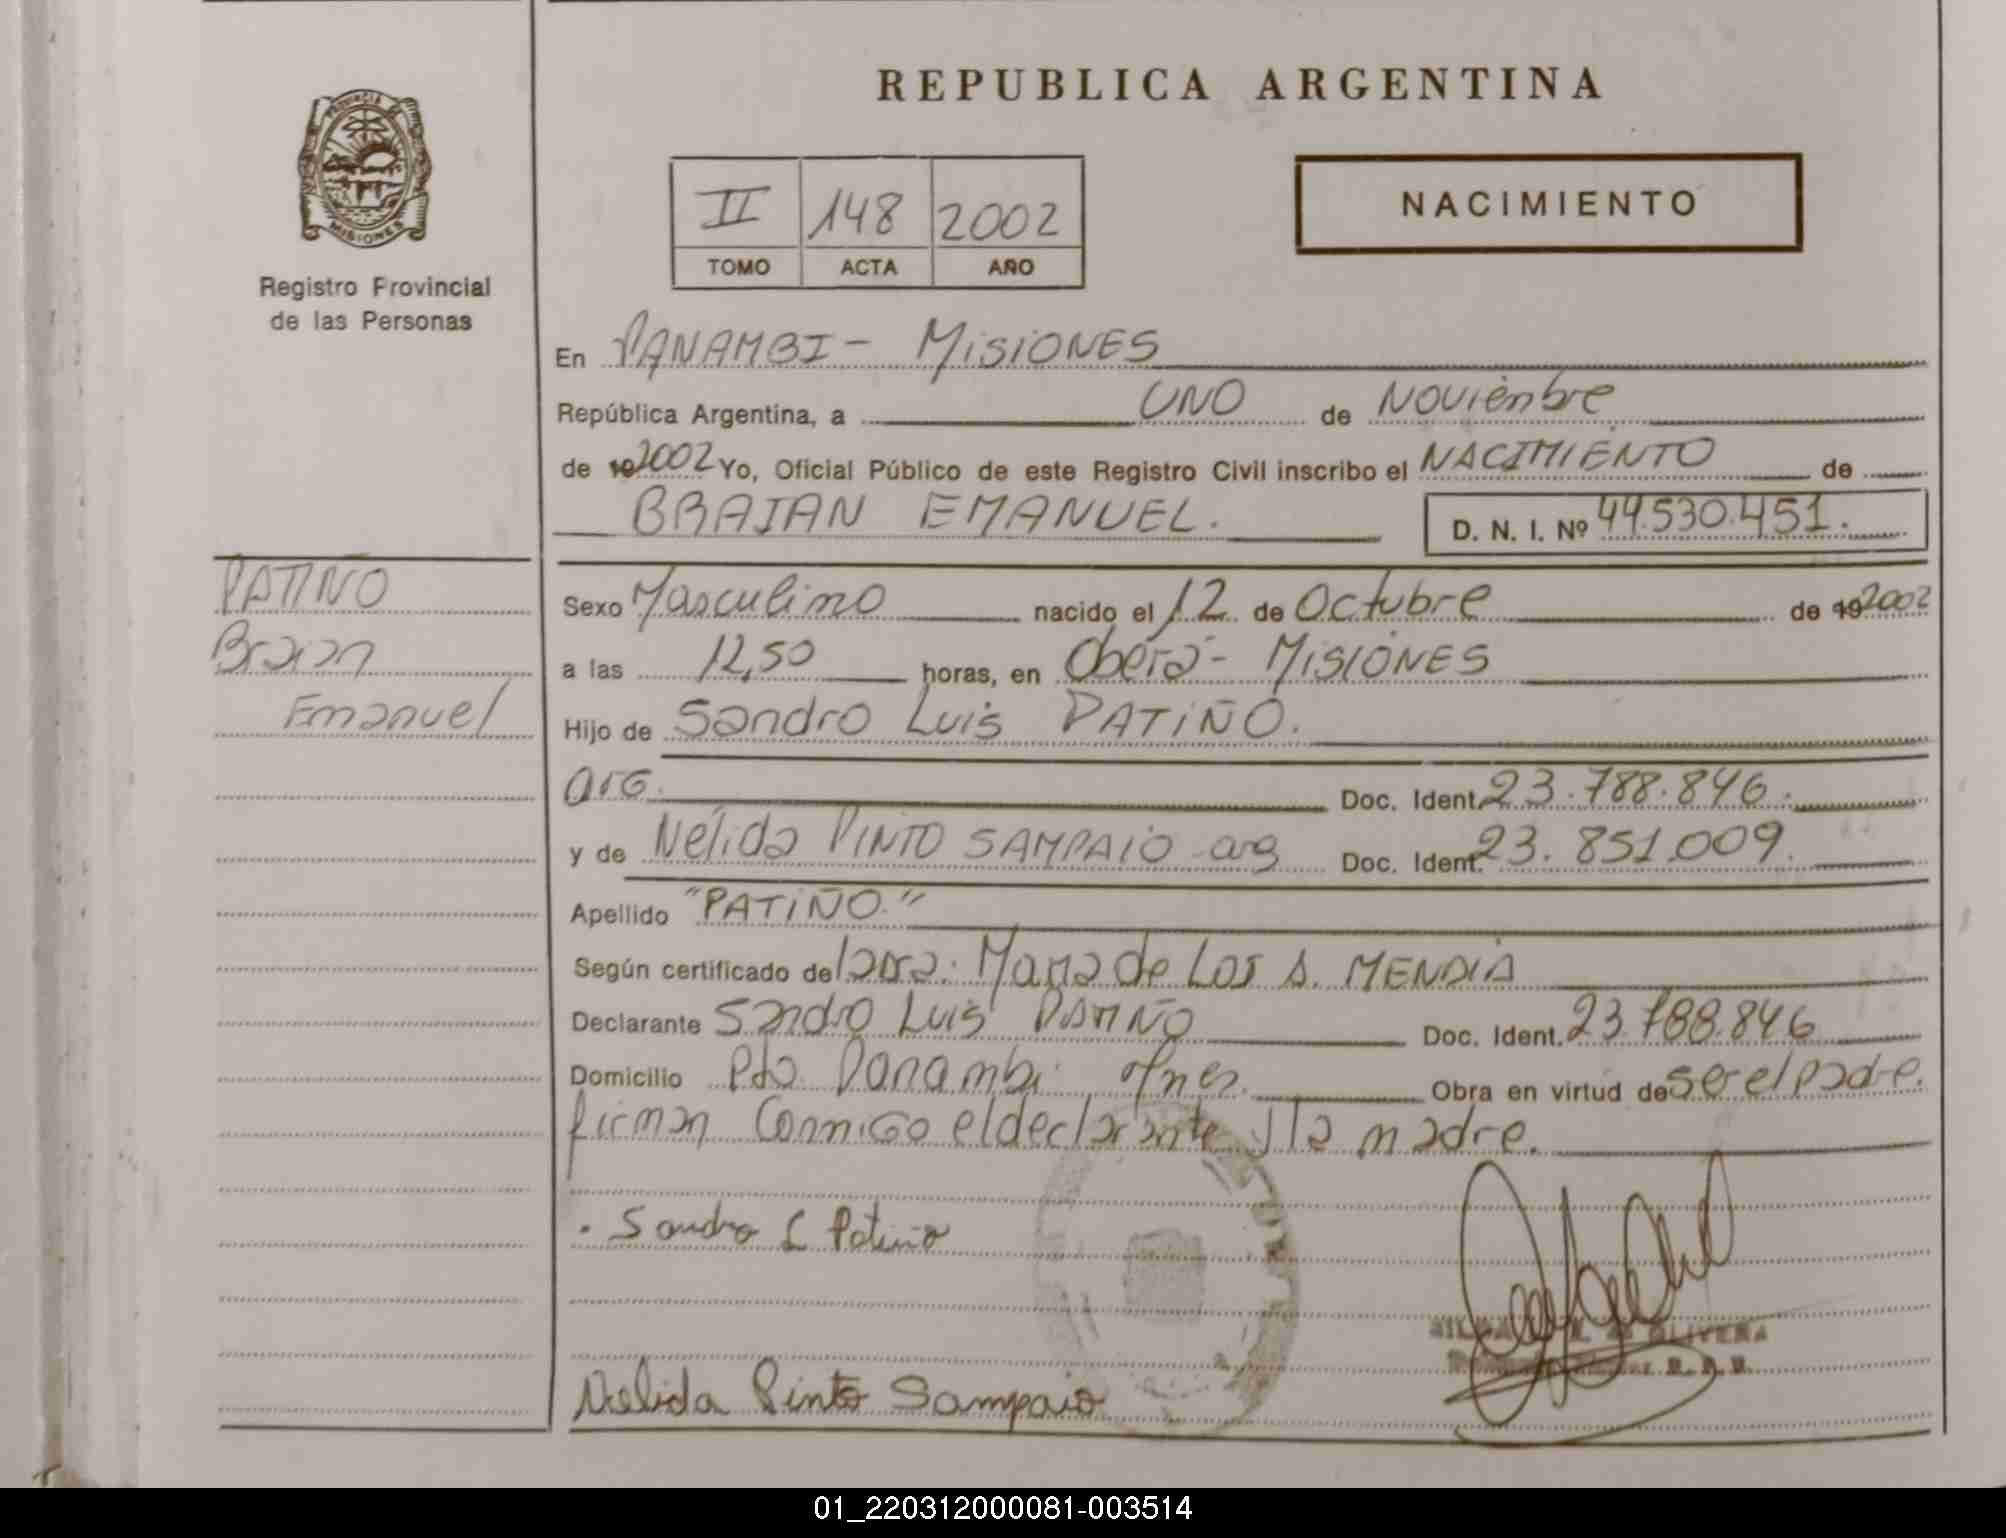 REPUBLICA ARGENTINA
PROVINCIA DE
MISIONES
Registro Provincial
de las Personas
II 148 2002
TOMO ACTA AÑO
NACIMIENTO
En PANAMBI - MISIONES
República Argentina, a UNO de Noviembre
de 192002 Yo, Oficial Público de este Registro Civil inscribo el NACIMIENTO de
BRAIAN EMANUEL. D. N. I. Nº 44.530.451.
PATIÑO
Braian
Emanuel
Sexo Masculino nacido el 12 de Octubre de 192002
a las 12,50 horas, en Oberá - MISIONES
Hijo de Sandro Luis PATIÑO.
arg. Doc. Ident. 23.788.846.
y de Nélida PINTO SAMPAIO - arg Doc. Ident. 23.851.009.
Apellido "PATIÑO."
Según certificado de la Dra. Maria de Los A. MENDIA
Declarante Sandro Luis PATIÑO Doc. Ident. 23.788.846
Domicilio Pto Panambi Mnes. Obra en virtud de ser el padre.
firman Conmigo el declarante y la madre.
Sandro L Patiño
OLIVERA
Nelida Pinto Sampaio
01_220312000081-003514